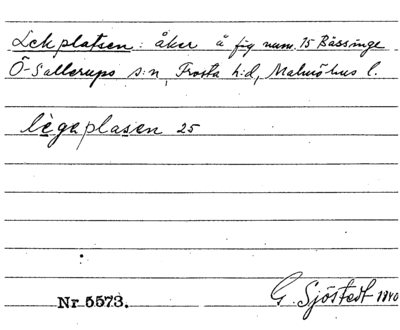 Lekplatsen: åker å fig num. 15 Bässinge
Ö-Sallerups s:n, Frosta h:d, Malmöhus l.
lègaplasen 25
Nr 5573.
G. Sjöstedt 1940